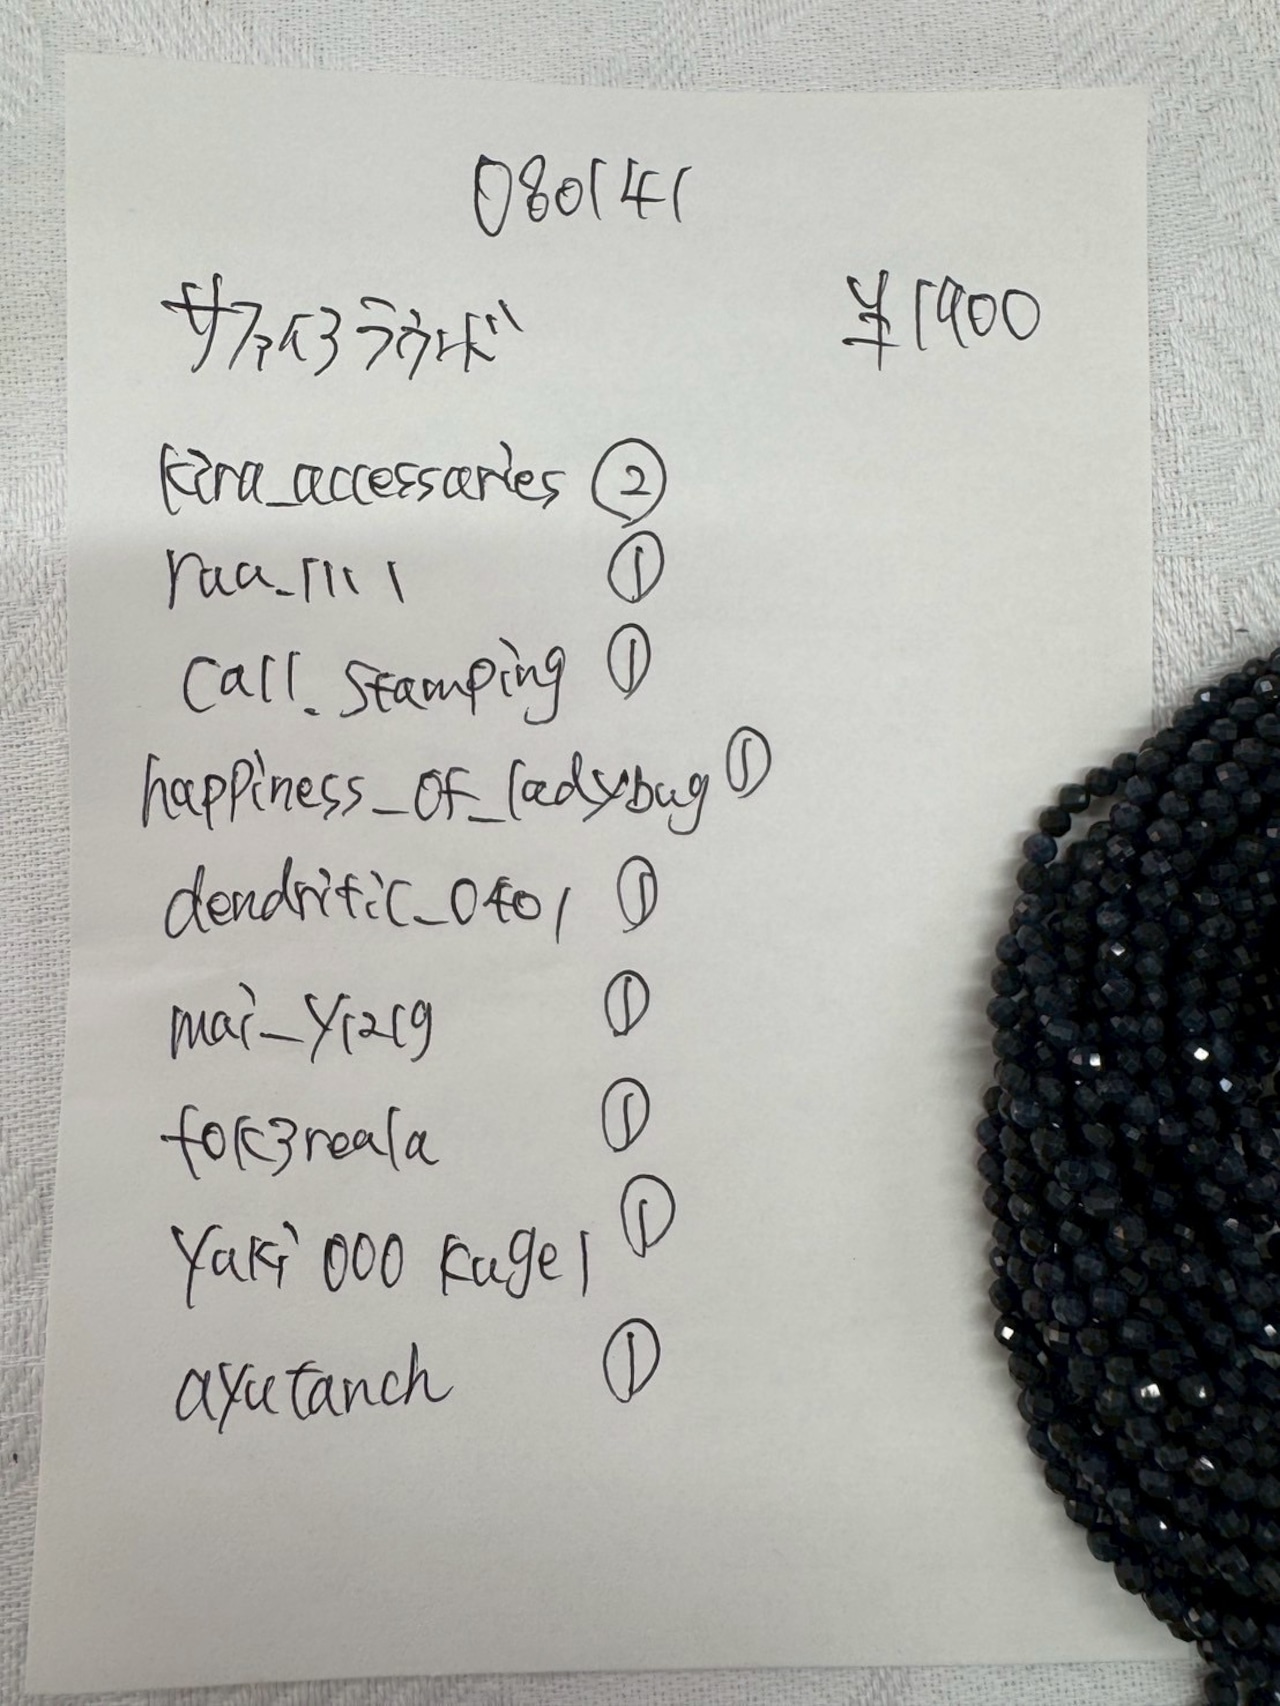 080141
サファイヤ ラウンド ¥1900
kira_accessaries ②
raa_1111 ①
call.stamping ①
happiness_of_ladybug ①
dendritic_0401 ①
mai_y1219 ①
tok3reala ①
yaki 000 kugel ①
ayutanch ①